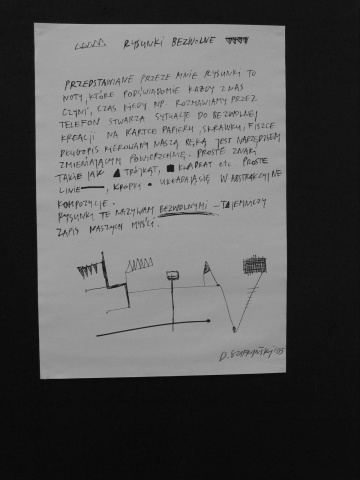 RYSUNKI BEZWOLNE
PRZEDSTAWIANE PRZEZE MNIE RYSUNKI TO
NOTY, KTÓRE PODŚWIADOMIE KAŻDY Z NAS
CZYNI, CZAS KIEDY NP. ROZMAWIAMY PRZEZ
TELEFON STWARZA SYTUACJE DO BEZWOLNEJ
KREACJI NA KARTCE PAPIERU, SKRAWKU, FISZCE
DŁUGOPIS KIEROWANY NASZĄ RĘKĄ JEST NARZĘDZIEM
ZMIENIAJĄCYM POWIERZCHNIĘ. PROSTE ZNAKI
TAKIE JAK TRÓJKĄT, KWADRAT etc. PROSTE
LINIE, KROPKI UKŁADAJĄ SIĘ W ABSTRAKCYJNE
KOMPOZYCJE.
RYSUNKI TE NAZYWAM BEZWOLNYMI – TAJEMNICZY
ZAPIS NASZYCH MYŚLI.